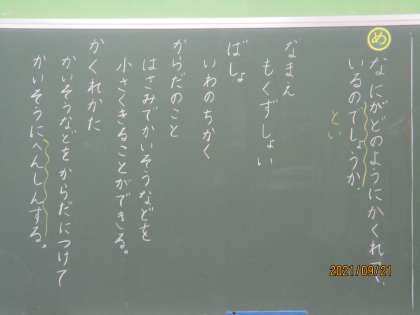 め
なにがどのようにかくれて
いるのでしょうか。
とい
なまえ
もくずしょい
ばしょ
いわのちかく
からだのこと
はさみでかいそうなどを
小さくきることができる。
かくれかた
かいそうなどをからだにつけて
かいそうにへんしんする。
2021/09/21